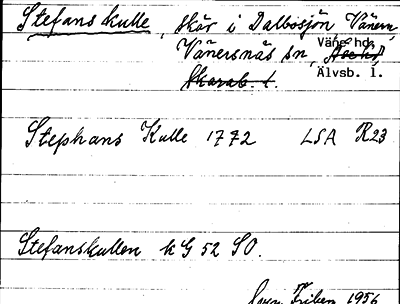 Stefanskulle, skär i Dalbosjön Vänern,
Vänersnäs sn, Väne hd.
Skarab. l. Älvsb. l.
Stephans Kulle 1772 LSA R23
Stefanskullen kG 52 SO.
Sven Friben 1956